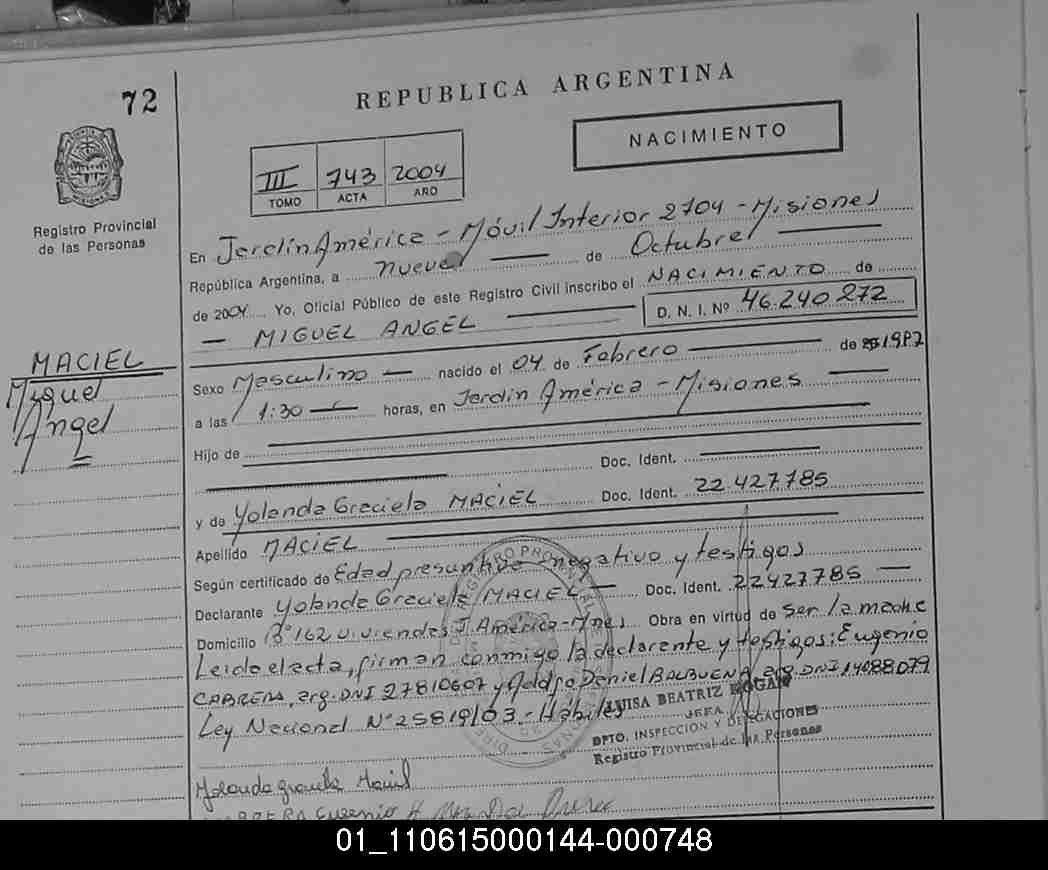 72
REPUBLICA ARGENTINA
NACIMIENTO
III 743 2004
TOMO ACTA AÑO
Registro Provincial
de las Personas
En Jardín América - Móvil Interior 2704 - Misiones
República Argentina, a nueve de Octubre
de 2004 Yo, Oficial Público de este Registro Civil inscribo el NACIMIENTO de
- MIGUEL ANGEL D. N. I. Nº 46.240.272
MACIEL
Miguel
Angel
Sexo Masculino nacido el 04 de Febrero de 1987
a las 1:30 horas, en Jardín América - Misiones
Hijo de
Doc. Ident.
y de Yolanda Graciela MACIEL Doc. Ident. 22.427.785
Apellido MACIEL
Según certificado de Edad presuntiva negativo y testigos
Declarante Yolanda Graciela MACIEL Doc. Ident. 22427785
Domicilio Bº 162 Viviendas J. América - Mnes Obra en virtud de ser la madre
Leída el acta, firman conmigo la declarante y testigos: Eugenio
CABRERA, arg. DNI 27810607 y Daniel BALBUENA, arg. DNI 14088079
Ley Nacional Nº 25819/03 - Hábiles
LUISA BEATRIZ HOGAN
JEFA
DPTO. INSPECCION Y DELEGACIONES
Registro Provincial de las Personas
Yolanda Graciela Maciel
01_110615000144-000748